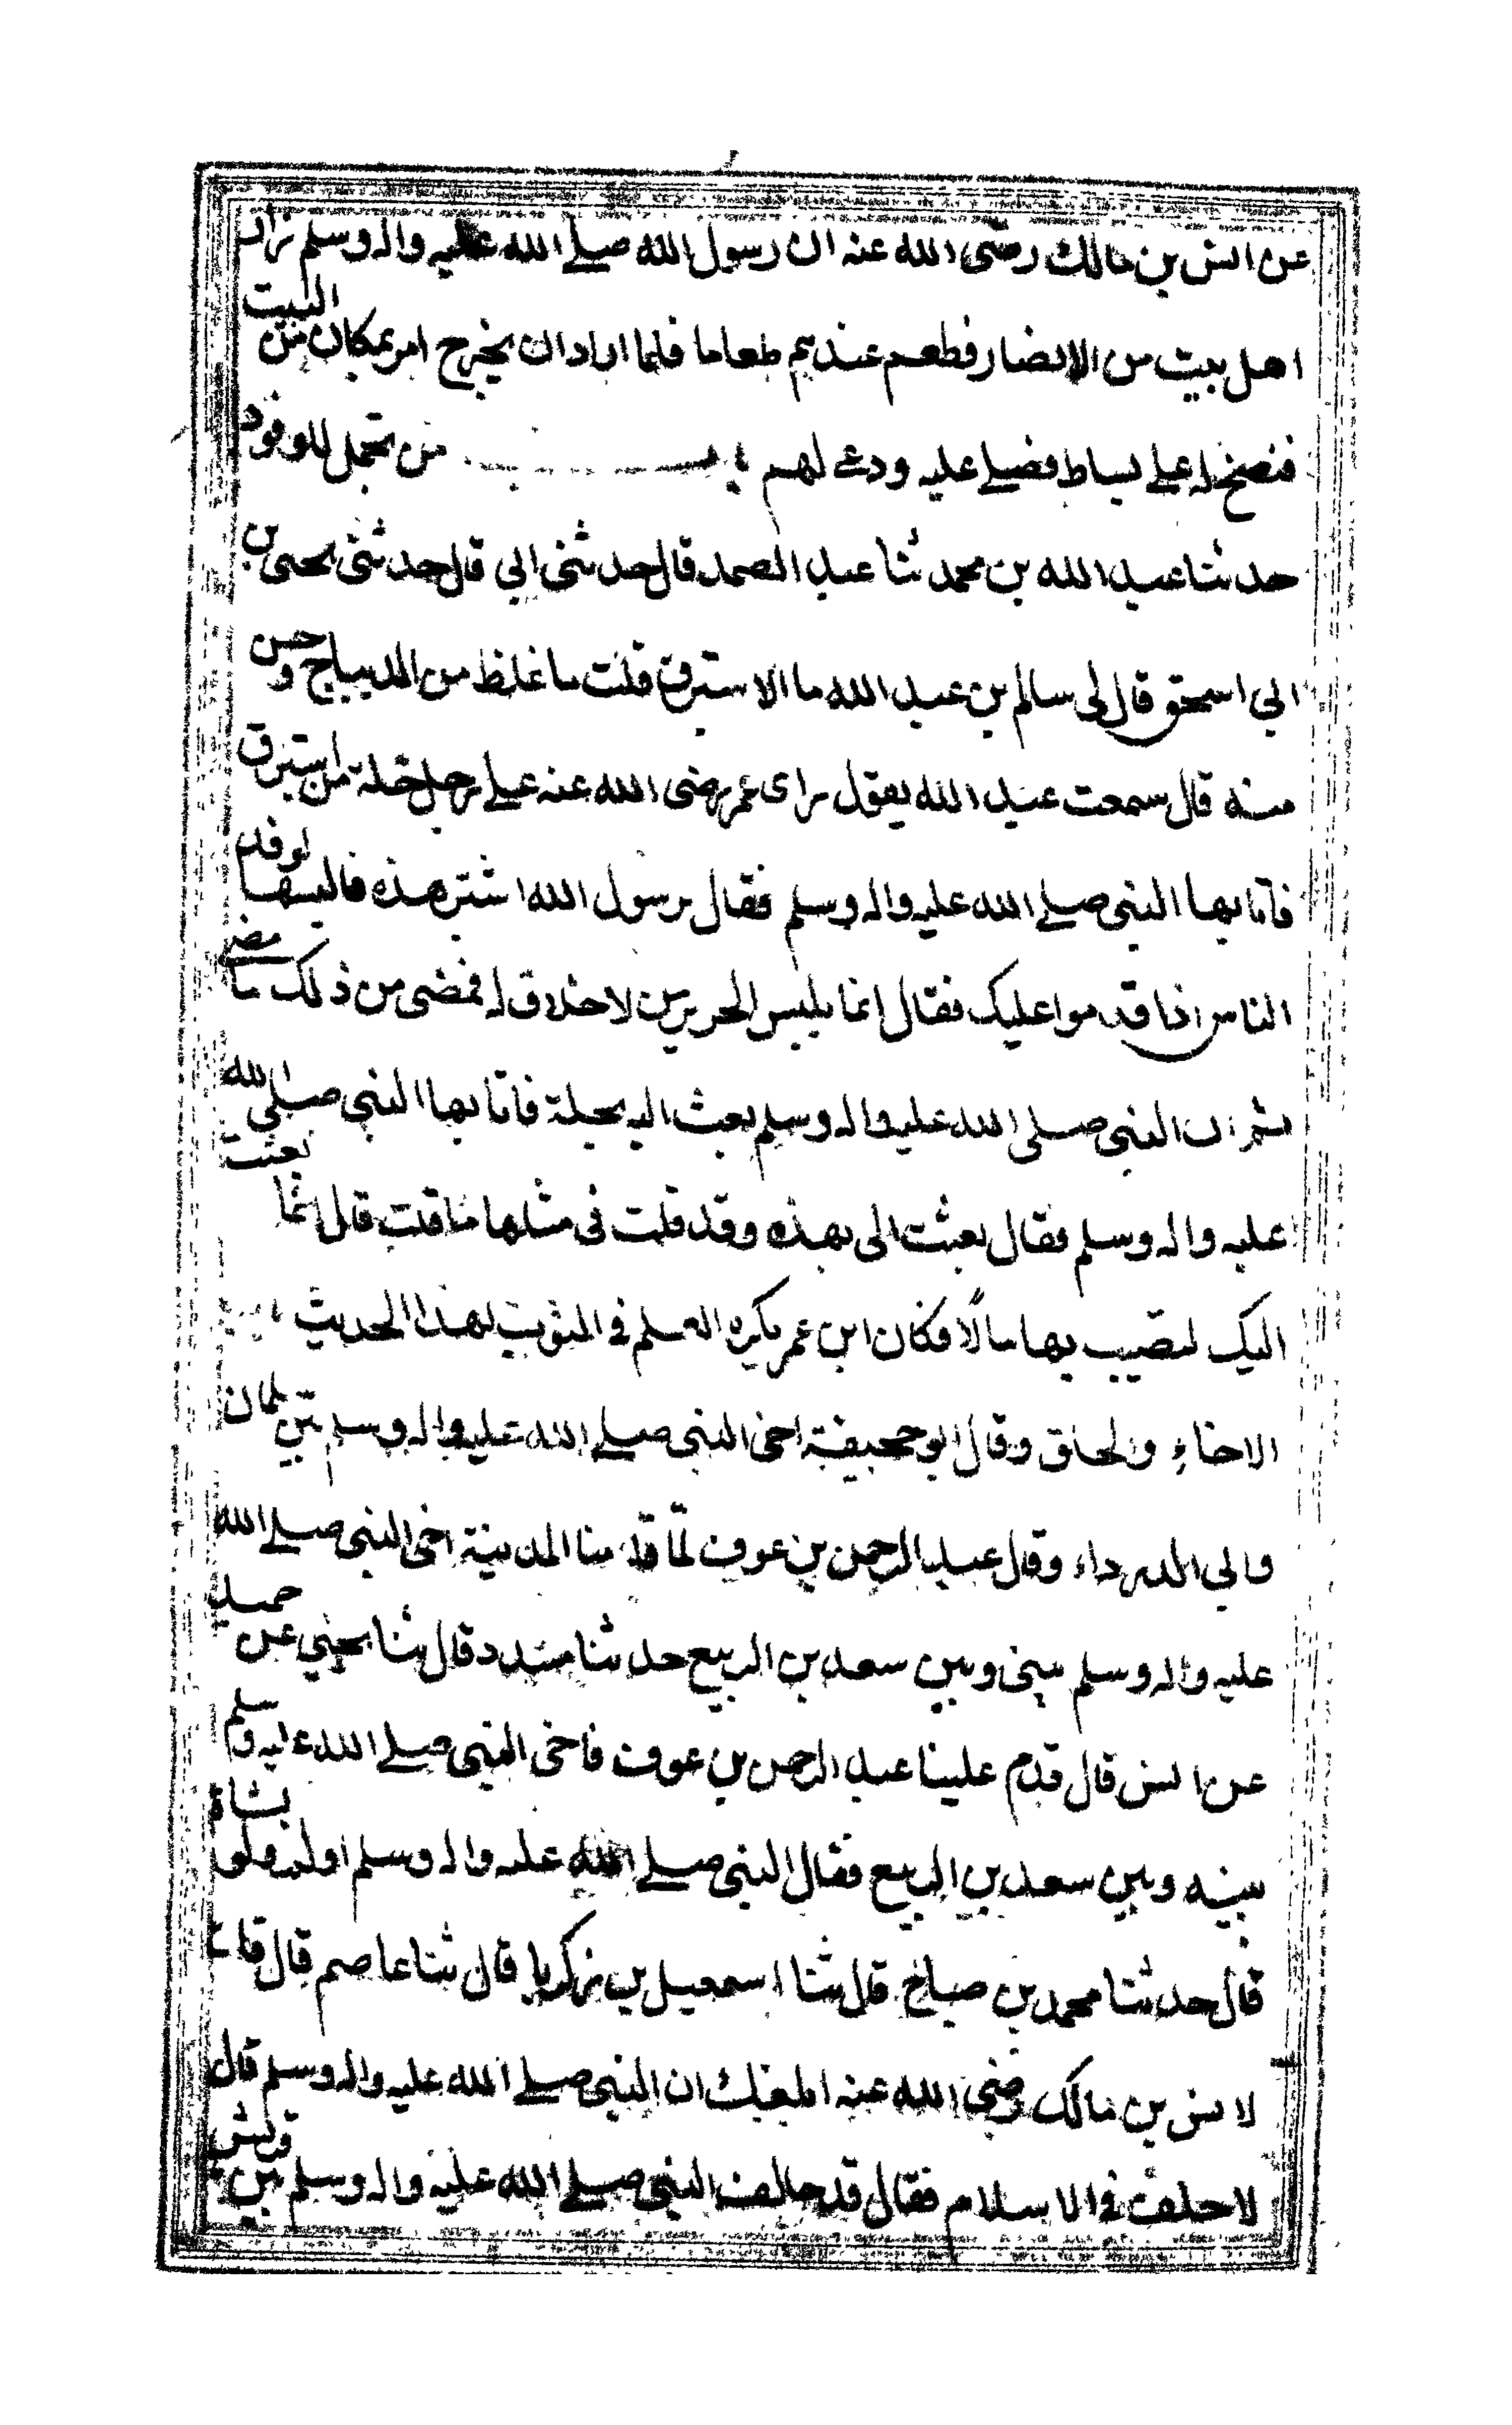 عن انس بن مالك رضى الله عنه ان رسول الله صلى الله عليه واله وسلم زار
اهل بيت من الانصار فطعم عندهم طعاما فلما اراد ان يخرج امر بمكان من البيت
فنضخ له على بساط فصلى عليه ودعى لهم من تجمل للوفود
حدثنا عبد الله بن محمد ثنا عبد الصمد قال حدثنى ابى قال حدثنى يحيى بن
ابى اسحق قال لى سالم بن عبد الله ما الاستبرق قلت ما غلظ من الديباج وحسن
منه قال سمعت عبد الله يقول راى عمر رضى الله عنه على رجل حلة من استبرق
فاتا بها النبى صلى الله عليه واله وسلم فقال رسول الله اشتر هذه فالبسها لوفد
الناس اذا قدموا عليك فقال انما يلبس الحرير من لا خلاق له فمضى من ذلك ما مضى
ثم ان النبى صلى الله عليه واله وسلم بعث اليه بحلة فاتا بها النبى صلى الله
عليه واله وسلم فقال بعثت الى بهذه وقد قلت فى مثلها ما قلت قال انما بعثت
اليك لتصيب بها مالًا فكان ابن عمر يكره العلم فى الثوب لهذا الحديث
الاخاء والحلق وقال ابو جحيفة اخى النبى صلى الله عليه واله وسلم بين سلمان
وابى الدرداء وقال عبد الرحمن بن عوف لمّا قدمنا المدينة اخى النبى صلى الله
عليه واله وسلم بينى وبين سعد بن الربيع حدثنا مسدد قال ثنا يحيى عن حميد
عن انس قال قدم علينا عبد الرحمن بن عوف فاخى النبى صلى الله عليه وسلم
بينه وبين سعد بن الربيع فقال النبى صلى الله عليه واله وسلم اولم ولو بشاة
قال حدثنا محمد بن صباح قال ثنا اسمعيل بن زكريا قال ثنا عاصم قال قلت
لانس بن مالك رضى الله عنه ابلغك ان النبى صلى الله عليه واله وسلم قال
لا حلف فى الاسلام فقال قد حالف النبى صلى الله عليه واله وسلم بين قريش